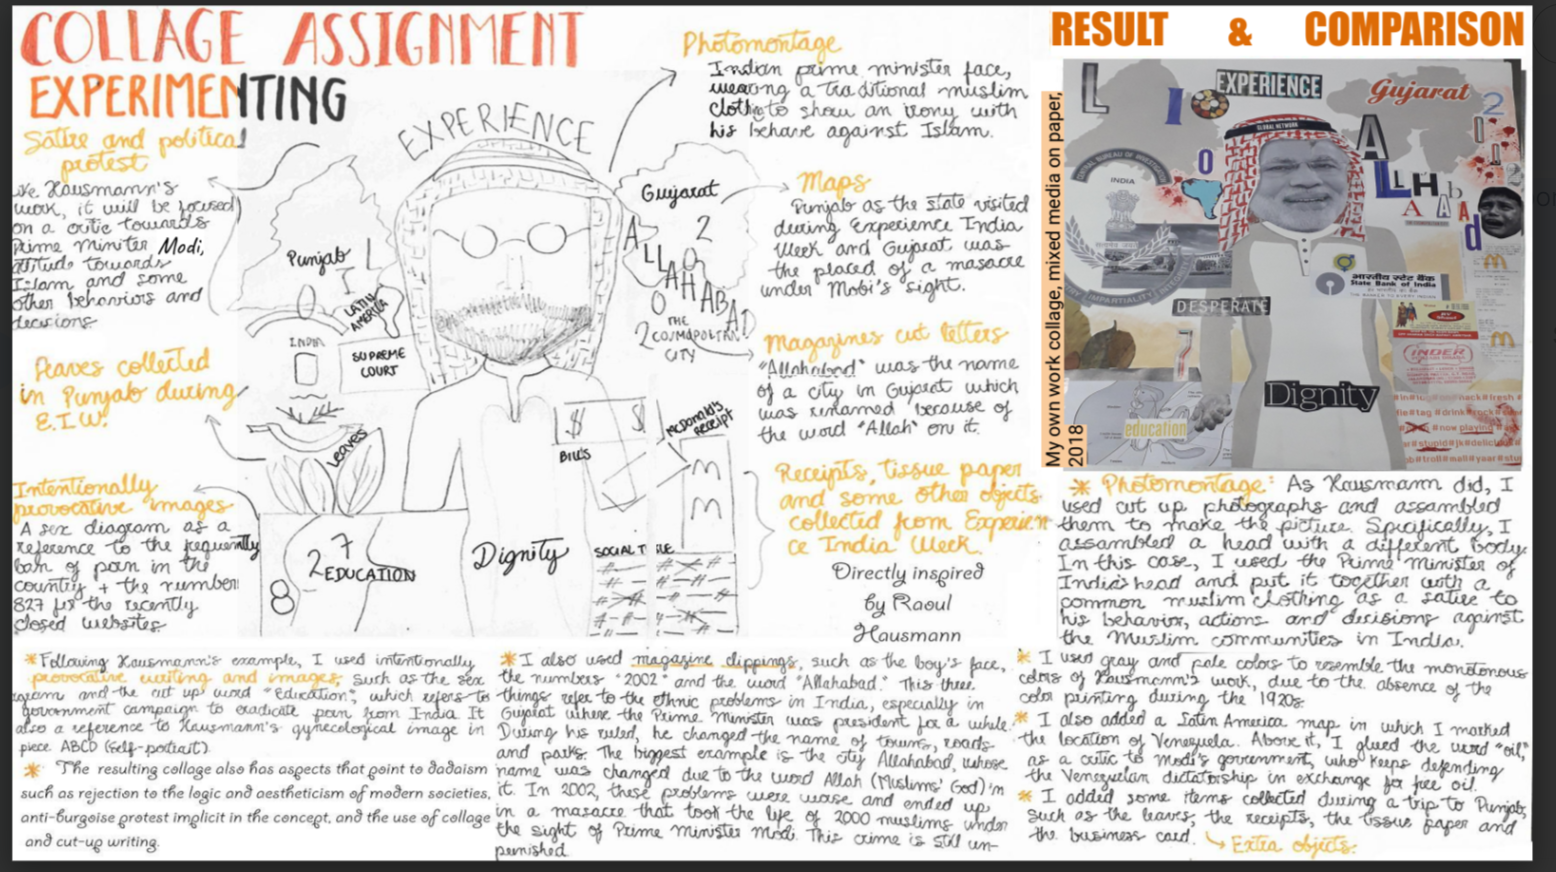 COLLAGE ASSIGNMENT
EXPERIMENTING
Satire and political
protest
Like Hausmann's
work, it will be focused
on a critic towards
Prime Minister Modi,
attitude towards
Islam and some
other behaviors and
decisions
Leaves collected
in Punjab during
E.I.W.
Intentionally
provocative images
A sex diagram as a
reference to the frequently
ban of porn in the
country + the number
827 for the recently
closed websites.
EXPERIENCE
Punjab
L
I
O
LATIN
AMERICA
INDIA
SUPREME
COURT
Leaves
8
2
7
EDUCATION
Dignity
Gujarat
ALLAHABAD
2
0
0
2
THE
COSMOPOLITAN
CITY
$ $
BILLS
McDONALD'S
RECEIPT
M
M
SOCIAL
# #
Photomontage
Indian prime minister face,
wearing a traditional muslim
cloth to show an irony with
his behave against Islam.
Maps
Punjab as the state visited
during Experience India
Week and Gujarat was
the placed of a masacre
under Mobi's sight.
Magazines cut letters
"Allahabad" was the name
of a city in Gujarat which
was renamed because of
the word "Allah" on it.
Receipts, tissue paper
and some other objects
collected from Experien
ce India Week.
Directly inspired
by Raoul
Hausmann
RESULT & COMPARISON
My own work collage, mixed media on paper,
2018
L
I
O
EXPERIENCE
Gujarat
2
0
0
2
GLOBAL NETWORK
ALLAHAbAd
CENTRAL BUREAU OF INVESTIGATION
INDIA
IMPARTIALITY
DESPERATE
भारतीय स्टेट बैंक
State Bank of India
INDER
Dignity
education
7
#now playing
#stupid#jk#delic
b#troll#mall#year#stu
* Photomontage: As Hausmann did, I
used cut up photographs and assembled
them to make the picture. Specifically, I
assembled a head with a different body.
In this case, I used the Prime Minister of
India's head and put it together with a
common muslim clothing as a satire to
his behavior, actions and decisions against
the Muslim communities in India.
* Following Hausmann's example, I used intentionally
provocative writing and images, such as the sex
diagram and the cut up word "Education", which refers to
government campaign to eradicate porn from India It
also a reference to Hausmann's gynecological image in
piece ABCD (Self-portrait).
* The resulting collage also has aspects that point to dadaism
such as rejection to the logic and aestheticism of modern societies,
anti-burgoise protest implicit in the concept, and the use of collage
and cut-up writing.
* I also used magazine clippings, such as the boy's face,
the numbers "2002" and the word "Allahabad." This three
things refer to the ethnic problems in India, especially in
Gujarat where the Prime Minister was president for a while.
During his ruled, he changed the name of towns, roads
and parks. The biggest example is the city Allahabad, whose
name was changed due to the word Allah (Muslims' God) in
it. In 2002, these problems were worse and ended up
in a masacre that took the life of 2000 muslims under
the sight of Prime Minister Modi. This crime is still un-
punished.
* I used gray and pale colors to resemble the monotonous
colors of Hausmann's work, due to the absence of the
color printing during the 1920s.
* I also added a Latin America map in which I marked
the location of Venezuela. Above it, I glued the word "oil",
as a critic to Modi's government, who keeps defending
the Venezuelan dictatorship in exchange for free oil.
* I added some items collected during a trip to Punjab,
such as the leaves, the receipts, the tissue paper and
the business card. Extra objects.